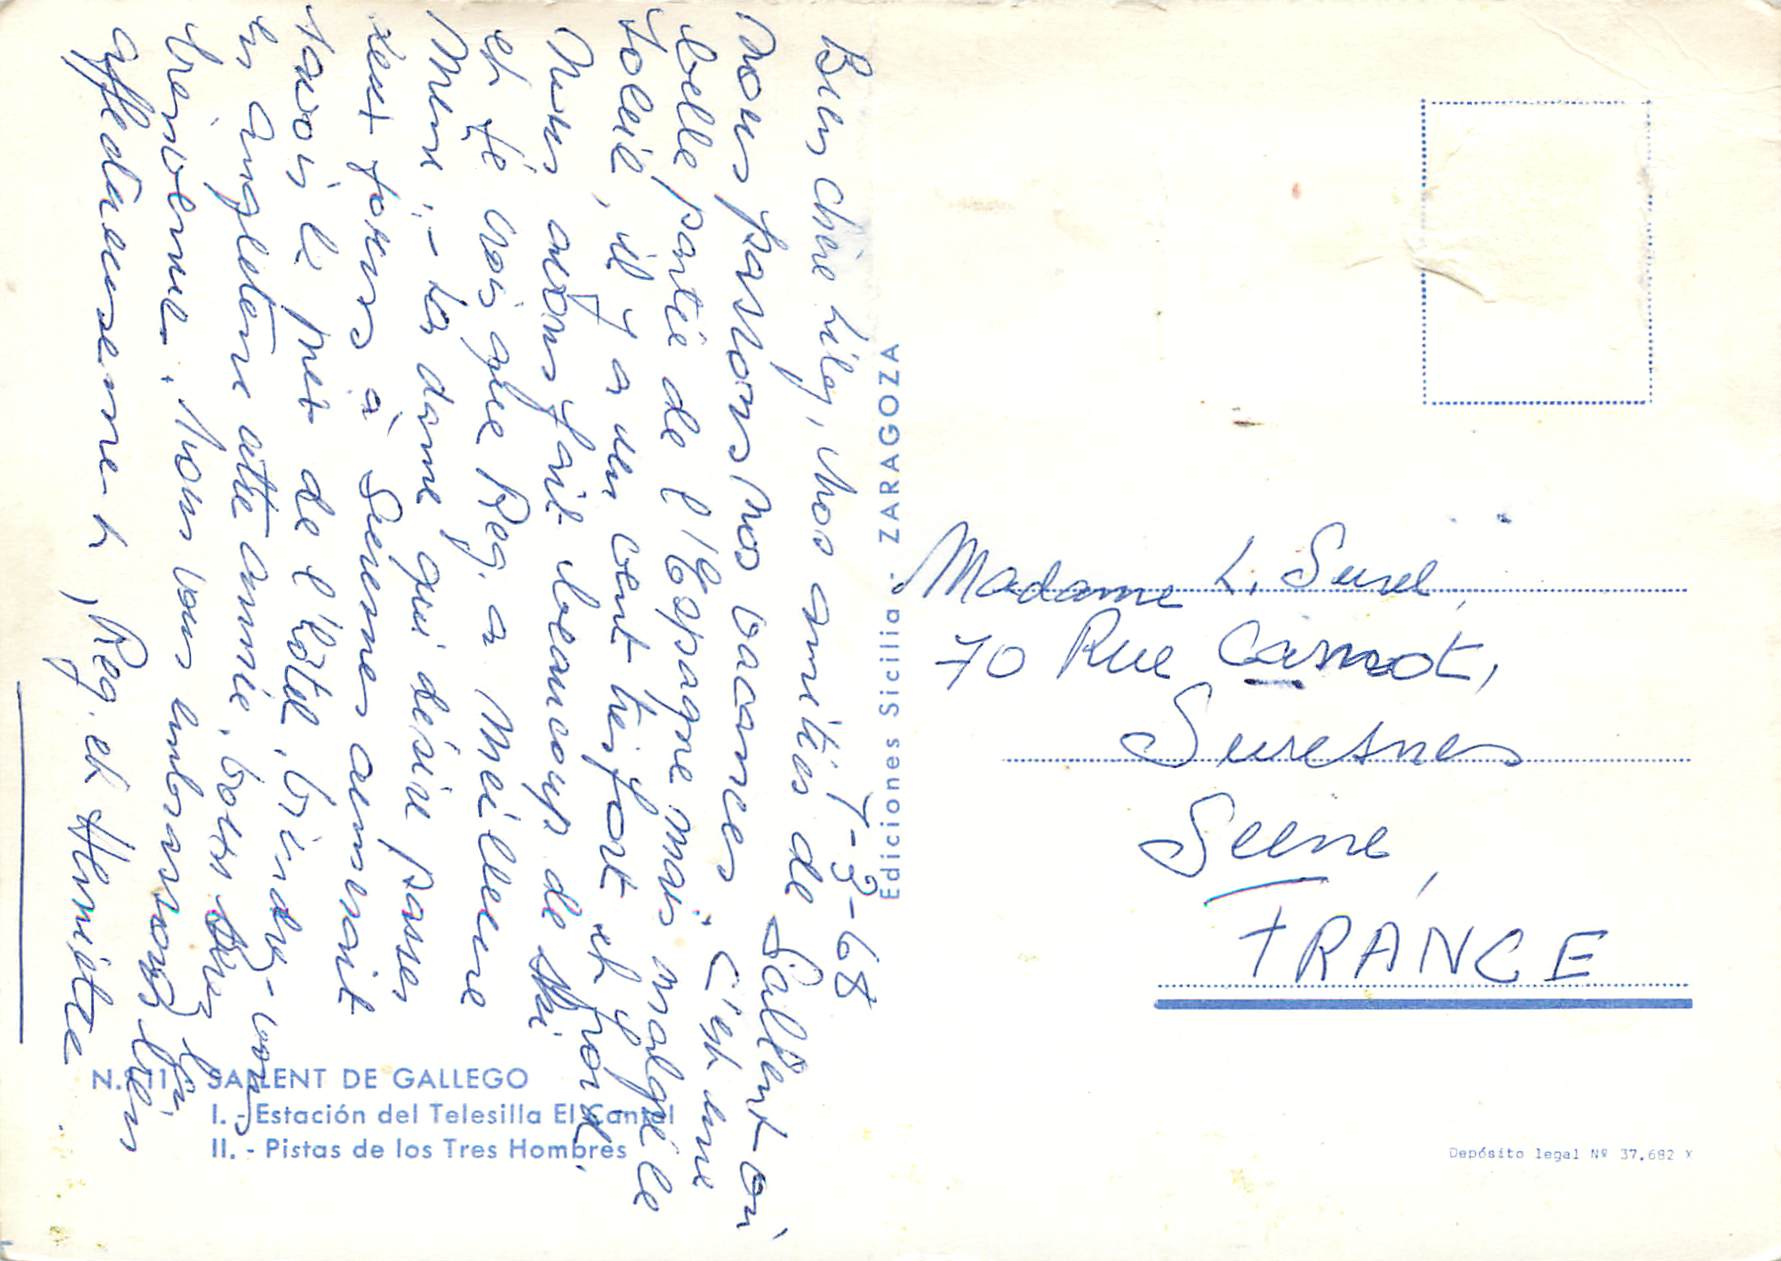 7-3-68
Bien chère Lily, Nos amitiés de Sallent où
nous passons nos vacances. C'est une
belle partie de l'Espagne mais malgré le
soleil, il y a un vent très fort et froid.
Nous avons fait beaucoup de ski
et je crois que Reg. a meilleure
Mine :- La dame qui désire passer
sept jours à Suresnes aimerait
savoir le prix de l'hôtel. Viendrez-vous
en Angleterre cette année, vous serez les
bienvenus. Nous vous embrassons bien
affectueusement, Reg. et Henriette
Ediciones Sicilia - ZARAGOZA
Madame L. Surel,
70 Rue Carnot,
Suresnes
Seine,
FRANCE
SALLENT DE GALLEGO
I. - Estación del Telesilla El Cantal
II. - Pistas de los Tres Hombres
Depósito legal Nº 37.682 X